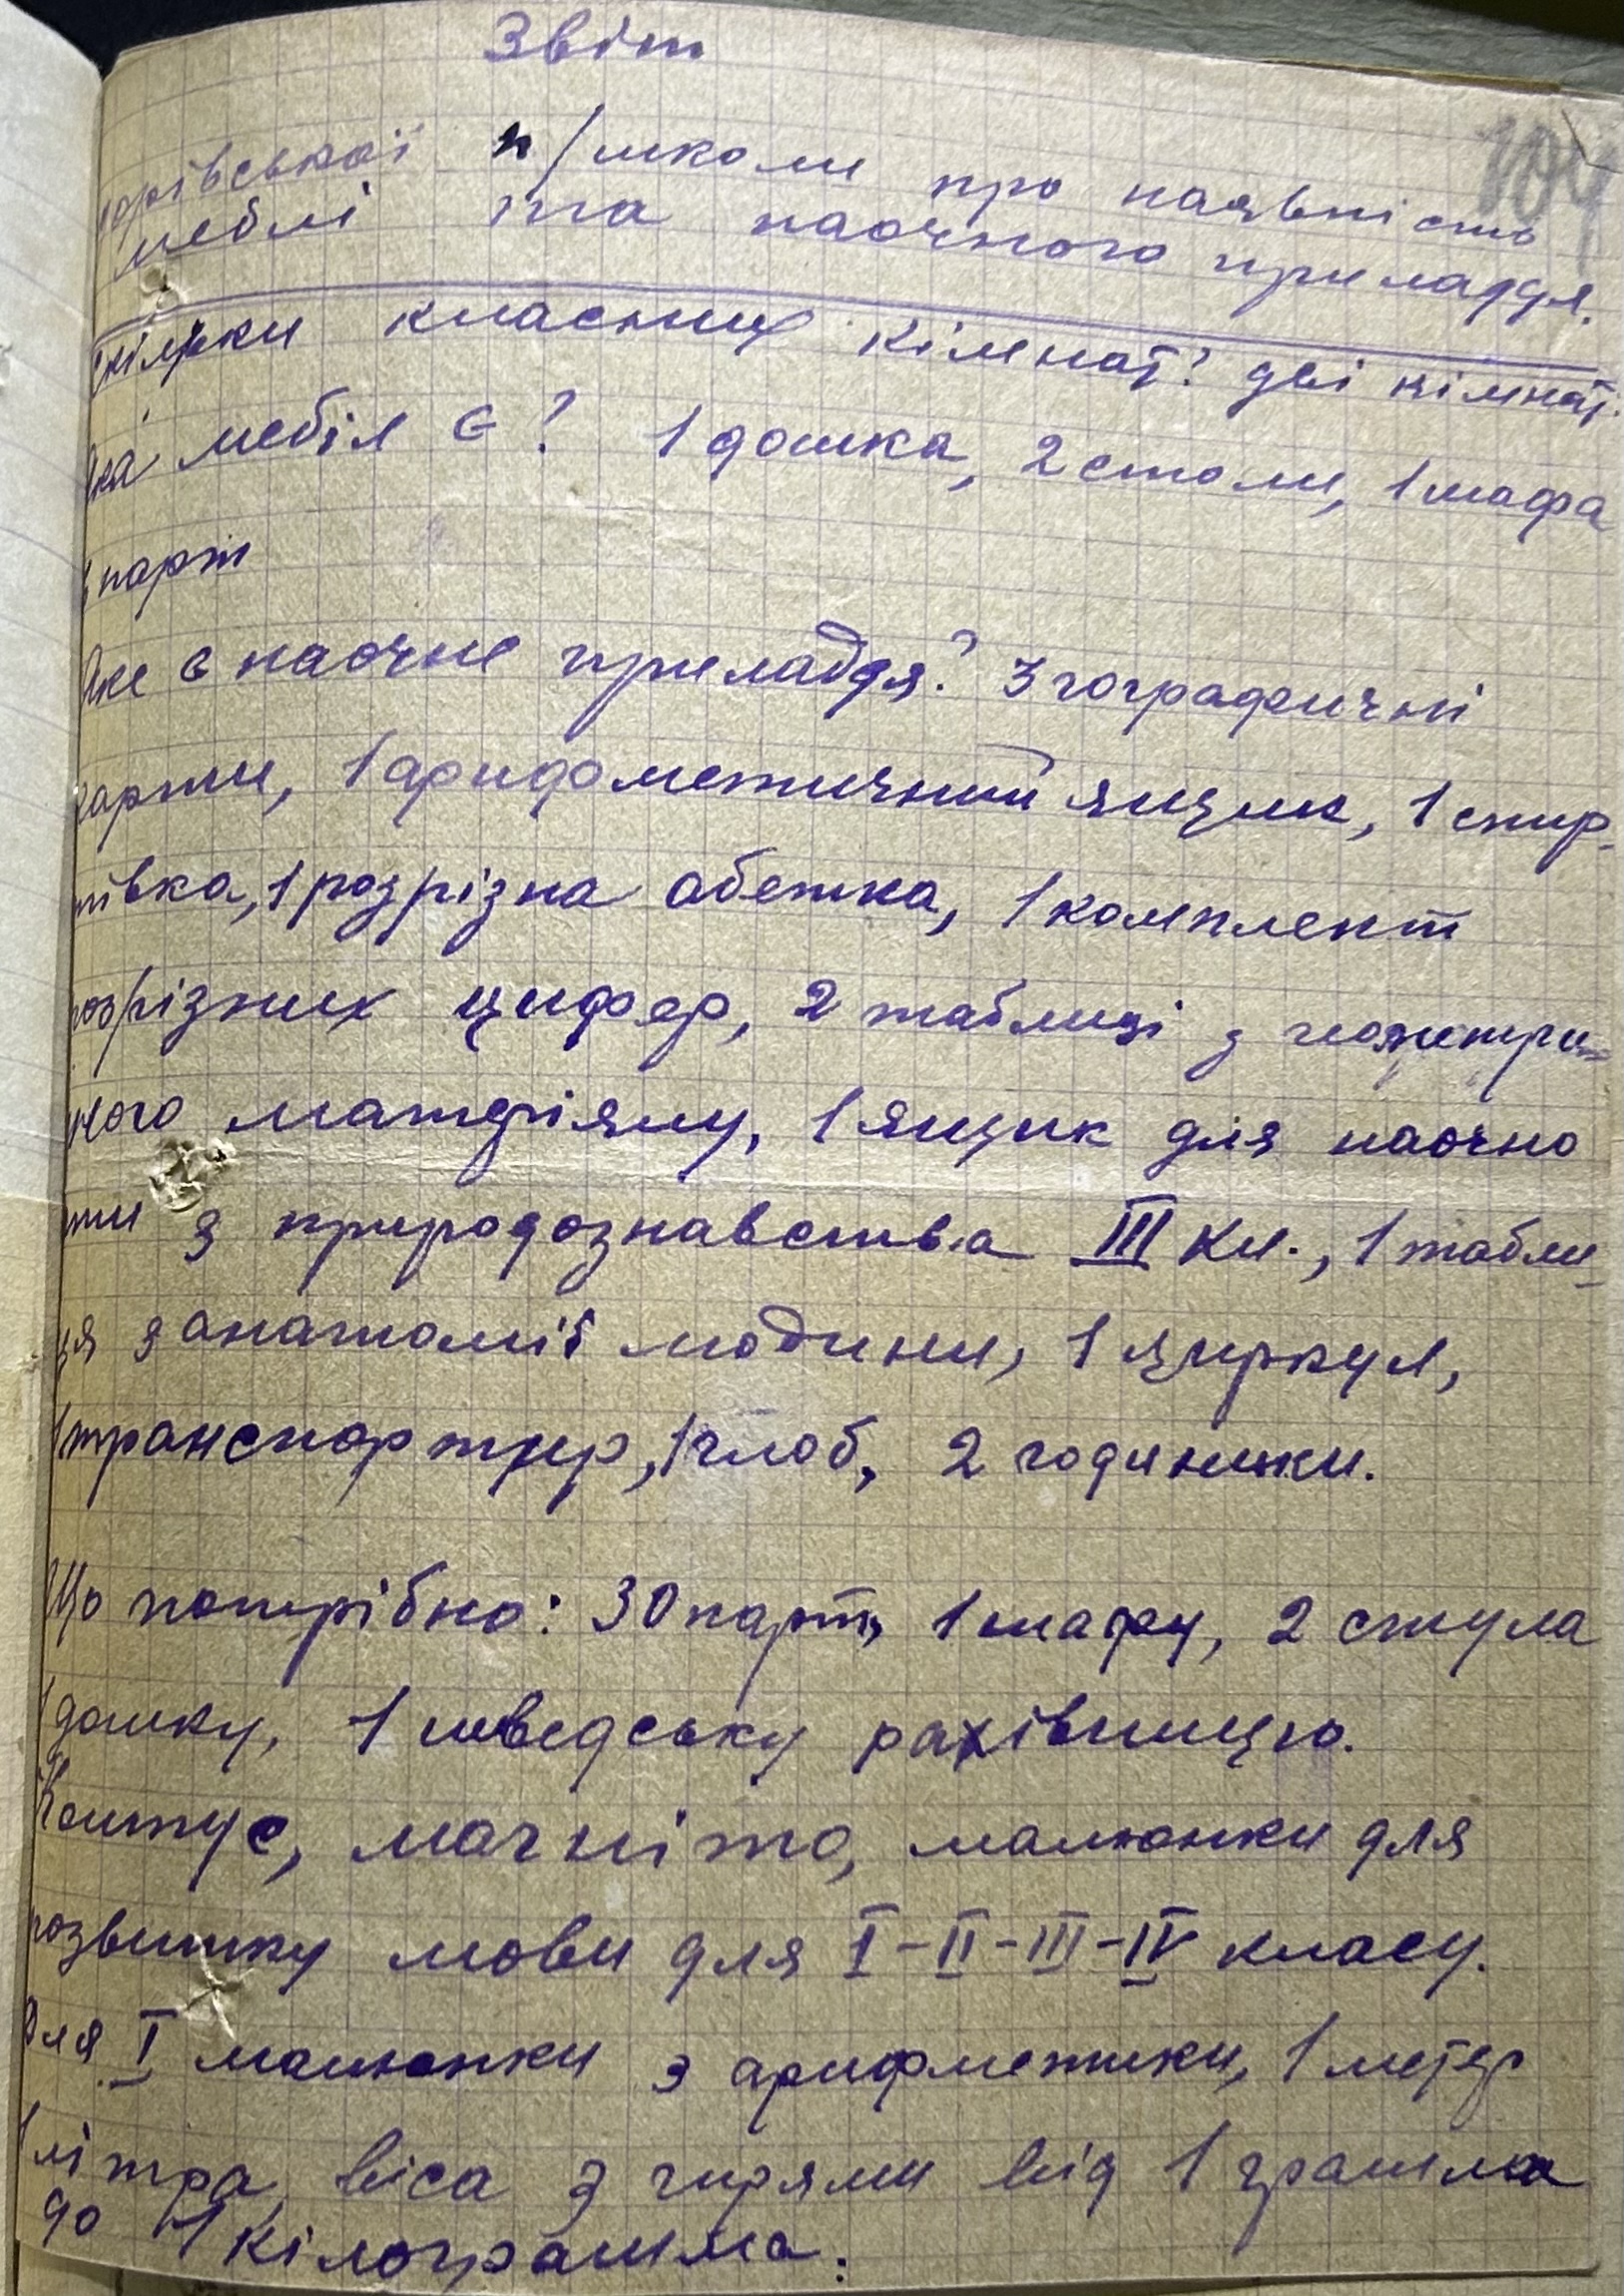 Звіт
104
арівської п/школи про наявність
меблі та наочного приладдя.
скільки класних кімнат? дві кімнат.
Яка мебіля є? 1 дошка, 2 столи, 1 шафа
парт
Яке є наочне приладдя? 3 гографичні
карти, 1 арифометичний ящик, 1 спир-
тівка, 1 розрізна абетка, 1 комплект
розрізних цифер, 2 таблиці з геометри-
чного матеріялу, 1 ящик для наочно
ти з природознавства III кл., 1 табли-
ця з анатомії людини, 1 циркуль,
1 транспортир, 1 глоб, 2 годинники.
Що потрібно: 30 парт, 1 шафу, 2 стула
1 дошку, 1 шведську рахівницю.
магніто, малюнки для
розвитку мови для I-II-III-IV класу.
Для I малюнки з арифметики, 1 метер
1 літра, віса з гирями від 1 грамма
до 1 кілограмма.